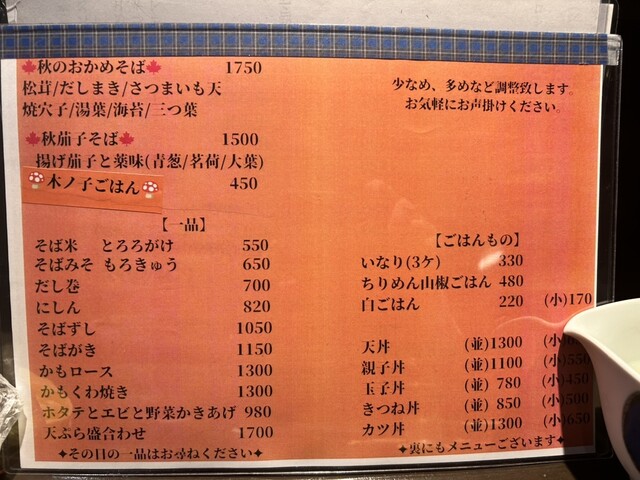 🍁秋のおかめそば🍁 1750
松茸/だしまき/さつまいも天
焼穴子/湯葉/海苔/三つ葉
🍁秋茄子そば🍁 1500
揚げ茄子と薬味(青葱/茗荷/大葉)
🍄木ノ子ごはん🍄 450
少なめ、多めなど調整致します。
お気軽にお声掛けください。
【一品】
そば米 とろろがけ 550
そばみそ もろきゅう 650
だし巻 700
にしん 820
そばずし 1050
そばがき 1150
かもロース 1300
かもくわ焼き 1300
ホタテとエビと野菜かきあげ 980
天ぷら盛合わせ 1700
✦その日の一品はお尋ねください✦
【ごはんもの】
いなり(3ケ) 330
ちりめん山椒ごはん 480
白ごはん 220 (小)170
天丼 (並)1300 (小)
親子丼 (並)1100 (小)550
玉子丼 (並) 780 (小)450
きつね丼 (並) 850 (小)500
カツ丼 (並)1300 (小)650
✦裏にもメニューございます✦